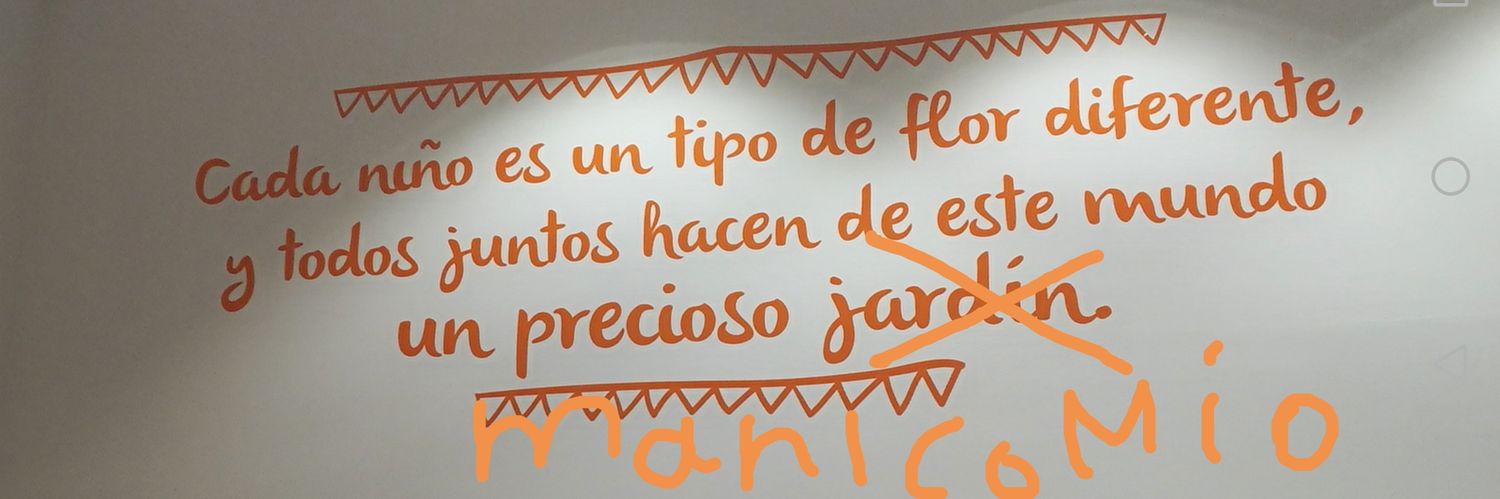 Cada niño es un tipo de flor diferente,
y todos juntos hacen de este mundo
un precioso jardín.
manicoMio